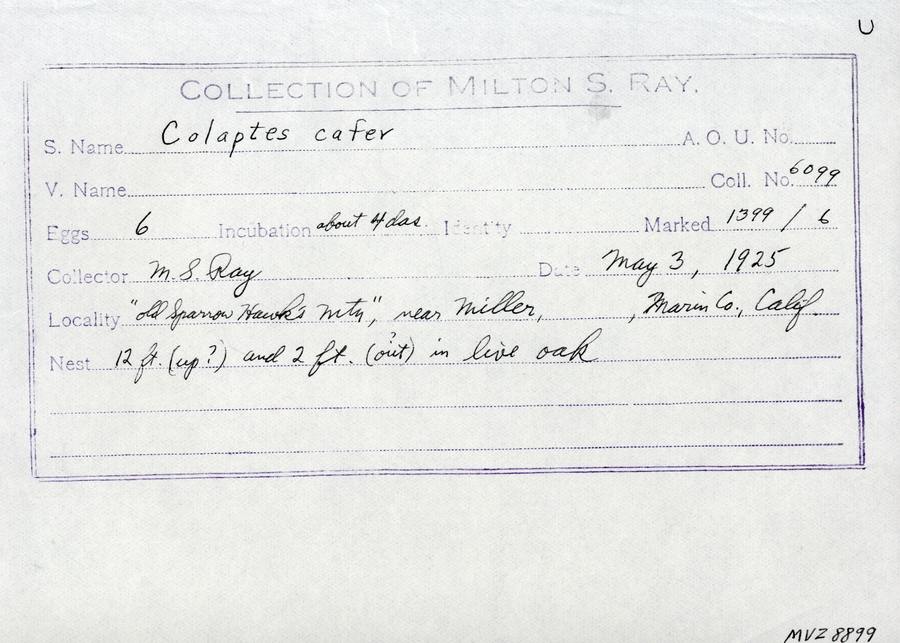 U
COLLECTION OF MILTON S. RAY.
S. Name Colaptes cafer A. O. U. No.
V. Name Coll. No. 6099
Eggs 6 Incubation about 4 das. Identity Marked 1399 / 6
Collector M. S. Ray Date May 3, 1925
Locality "old Sparrow Hawk's mtn", near Miller, , Marin Co., Calif.
Nest 12 ft. (up?) and 2 ft. (out?) in live oak
MVZ 8899